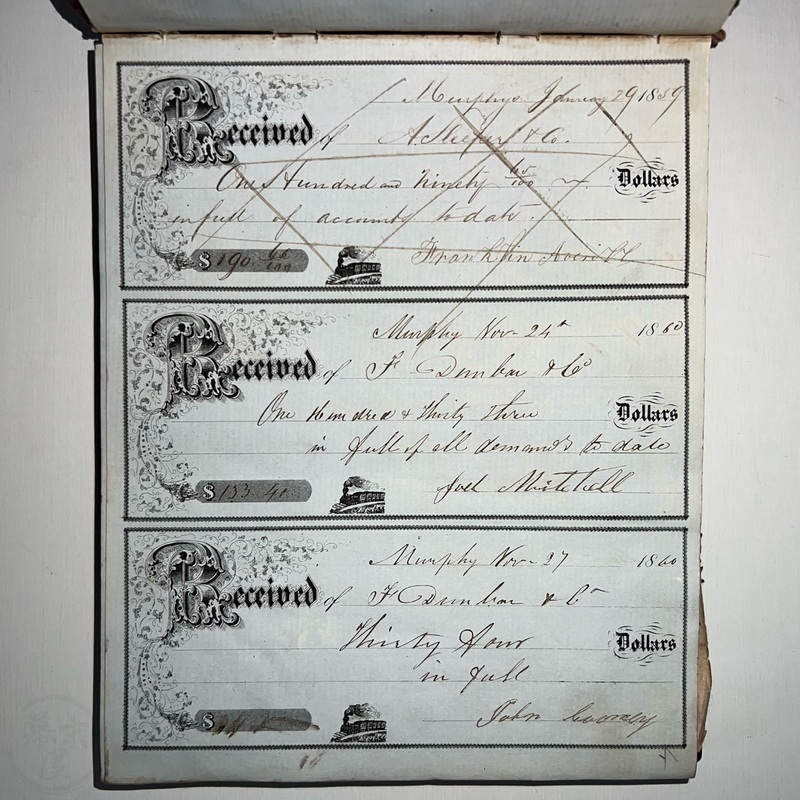 Murphys January 29 1859
Received of A & Co.
One Hundred and Ninety 65/100 Dollars
in full of accounts to date.
$ 190 65/100 Franklin
Murphy Nov- 24th 1860
Received of F Dunbar & Co
One Hundred & Thirty three Dollars
in full of all demands to date
$ 133 41 Joel Mitchell
Murphy Nov- 27 1860
Received of F Dunbar & Co
Thirty four Dollars
in full
$ John Cooney